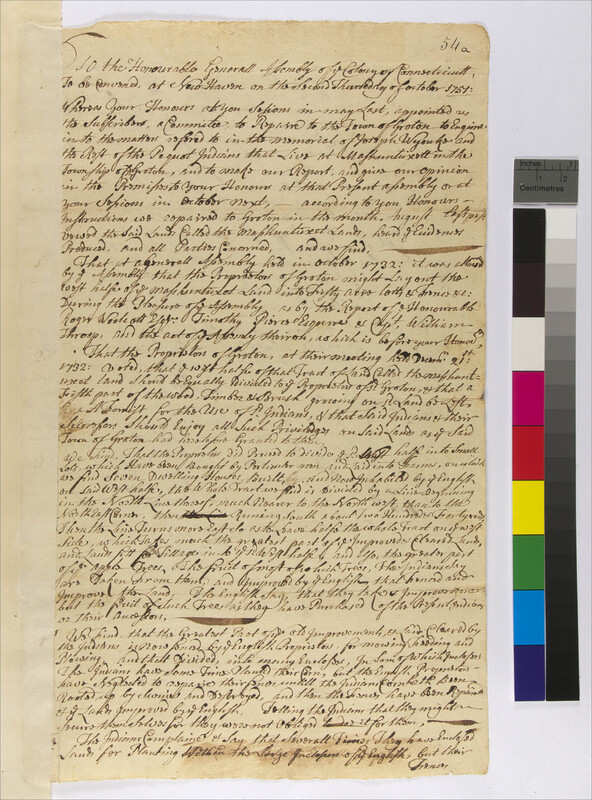 54a
To the Honourable Generall Assembly of ye Colony of Connecticutt,
To be Convened, at New Haven on the Second Thursday of october 1751:
Whereas Your Honours at you Sessions in may Last, appointed us
the Subscribers, a Committe, to Repaire to the Town of Groton to Enquire
into the matters refered to in the memorial of Joseph Wyouke and
the Rest of the Pequot Indians that Live at Mashuntuxett in the
Township of Groton, and to make our Report, and give our opinion
in the Premises to Your Honours at that Present assembly or at
your Sessions in october Next, — according to you Honours —
Instructions we repaired to Groton in the month August
vewed the Said Lands Called the Mashuntuxet Lands, heard ye Evidences
Produced, and all Parties Concerned, and we find,
That at a generall Assembly held in october 1732: it was
by ye Assembly that the Proprietors of Groton might Layout the
West half of ye Mashantuxet Land into Fifty acre Lotts & Fence &c:
During the Pleasure of ye Assembly, as by the Report of ye Honourable
Roger Wolcott Esqr: Timothy Pierce Esquire & Capt. William
Throop, and the act of ye Assembly thairon, which is before your Honours
That the Proprietors of Groton, at their meeting held
1732: Voted, that ye west halfe of that Tract of land Called the Mashant-
uxet land Should be Equally Divided to ye Proprietors of sd Groton, & that a
Fifth part of the wood Timber & Brush growing on sd Land be
for the Use of ye Indians, & that Said Indians & their
Successors Should Enjoy all Such Priviledges on Said Land as ye Said
Town of Groton had heretofore Granted to them
We find, That the Proprietors Did Proceed to divide ye sd West half into Small
Lots, which Have been Bought by Perticular men and laid into Farms, on which
we find Seven Dwelling Houses built, and Now Inhabited by ye English,
sd Said West halfe, the whole Tract we find is Divided by a Line Begining
in the North Line thereof much Nearer to the North west than to the
North East Corner, Runing South about Two Hundred
Then the line Turns more East so as to Leave halfe the whole Tract on ye west
Side, which takes much the greatest part of ye Improved & Cleared lands,
and Lands fitt for Tillage into ye sd West halfe, and also, the greater part
of ye Apple Trees, The fruit of most of which Trees, The Indians Say
are Taken From them, and Improved by ye English, that Fenced and
Improve the land, The English Say, that They take & Improve
but the fruit of Such Trees as they have Purchased of the Present Indians
or their Ancestors,
We find, that the Greatest Part of ye old Improvements, & Land Cleared by
the Indians is now Fenced by ye English Proprietors, for mowing, feeding and
Plowing and thatt Divided, into many Enclosers, In Sum of which Inclosers
The Indians have Some Times Planted their Corn, but the English Proprietors —
have Neglected to repaire their Fences untill the Indians Corn hath been
Rooted up by Swine and Destroyed, and then the Fences have been Repaired
& ye Land Improved by ye English. Telling the Indians that they might
secure themSelves for they were not Obliged to doe it for them,
The Indians Complaine & Say, that Severall Times They have Enclosed
Lands for Planting Within the Large Inclosers of ye English, but their
Fences